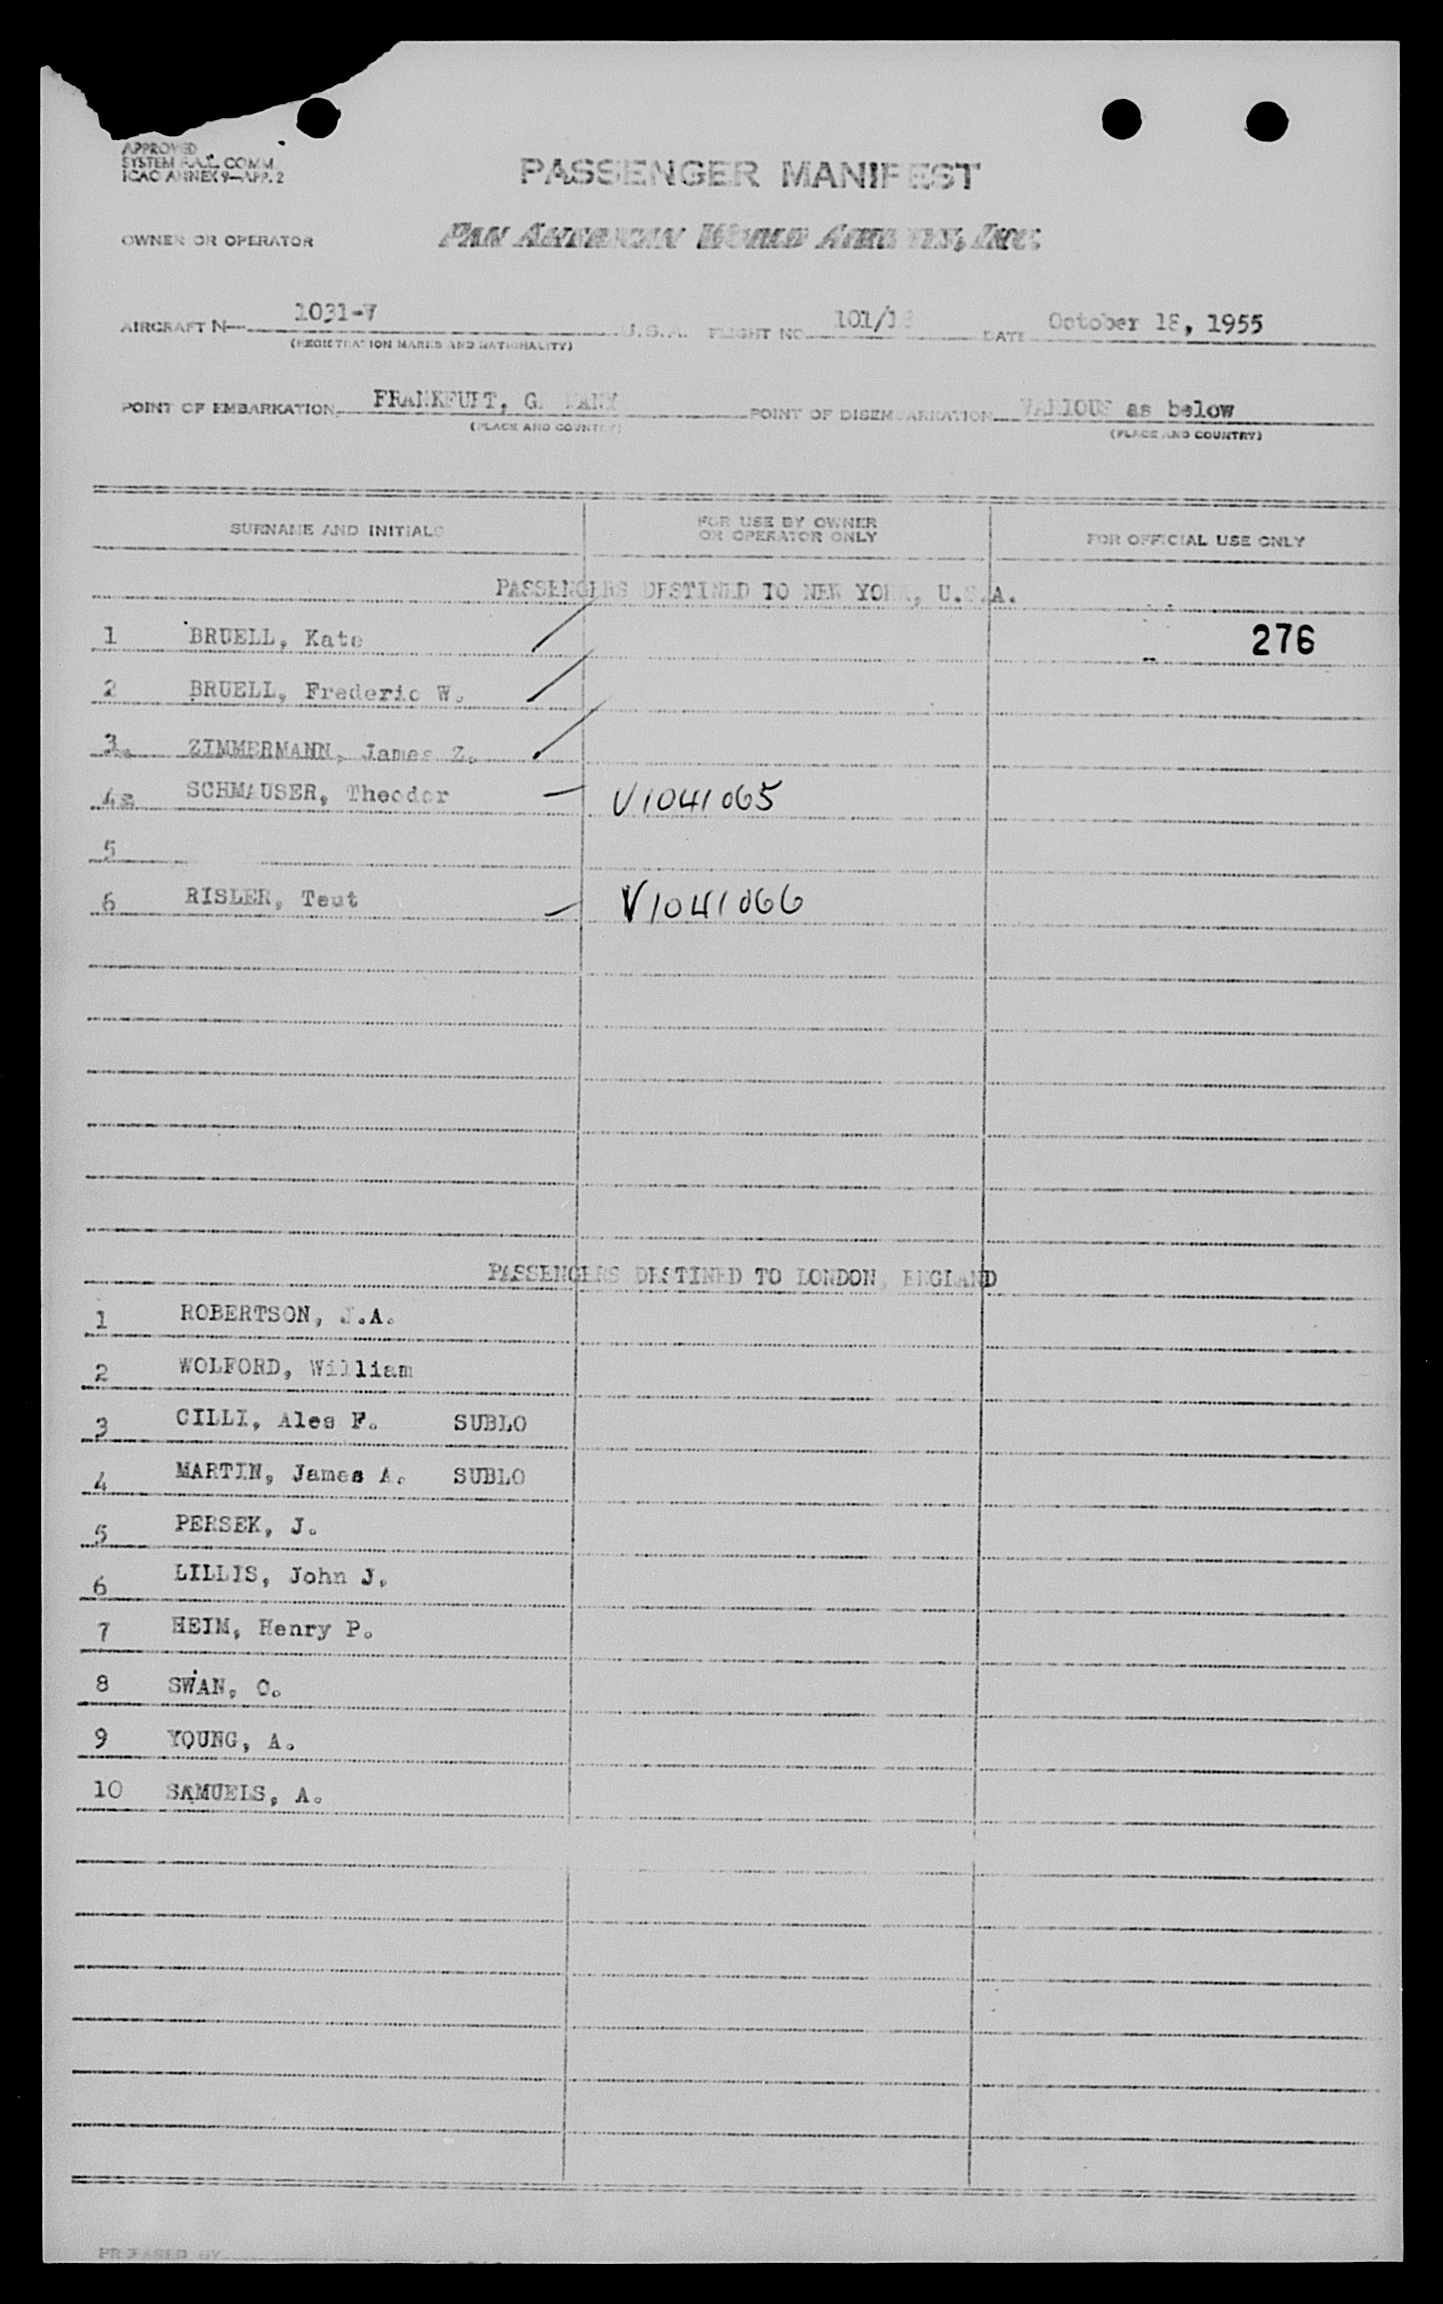 APPROVED
SYSTEM F.A.L. COMM.
ICAO ANNEX 9—APP. 2
PASSENGER MANIFEST
OWNER OR OPERATOR PAN AMERICAN WORLD AIRWAYS, INC.
AIRCRAFT N— 1031-V U.S.A. FLIGHT NO. 101/18 DATE October 18, 1955
(REGISTRATION MARKS AND NATIONALITY)
POINT OF EMBARKATION FRANKFURT, GERMANY POINT OF DISEMBARKATION VARIOUS as below
(PLACE AND COUNTRY) (PLACE AND COUNTRY)
SURNAME AND INITIALS FOR USE BY OWNER OR OPERATOR ONLY FOR OFFICIAL USE ONLY
PASSENGERS DESTINED TO NEW YORK, U.S.A.
1 BRUELL, Kate 276
2 BRUELL, Frederic W.
3. ZIMMERMANN, James Z.
4 SCHMAUSER, Theodor V1041065
5
6 RISLER, Teut V1041066
PASSENGERS DESTINED TO LONDON, ENGLAND
1 ROBERTSON, J.A.
2 WOLFORD, William
3 CILLI, Ales F. SUBLO
4 MARTIN, James A. SUBLO
5 PERSEK, J.
6 LILLIS, John J.
7 HEIM, Henry P.
8 SWAN, C.
9 YOUNG, A.
10 SAMUELS, A.
PREPARED BY